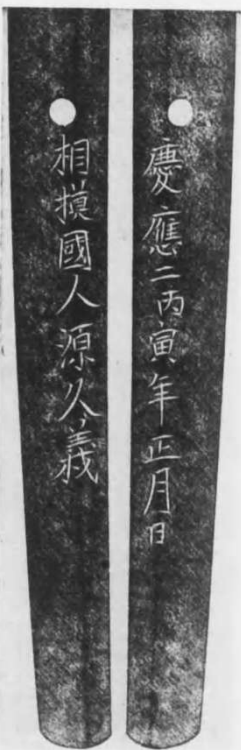 慶應二丙寅年正月日
相摸國人源久義